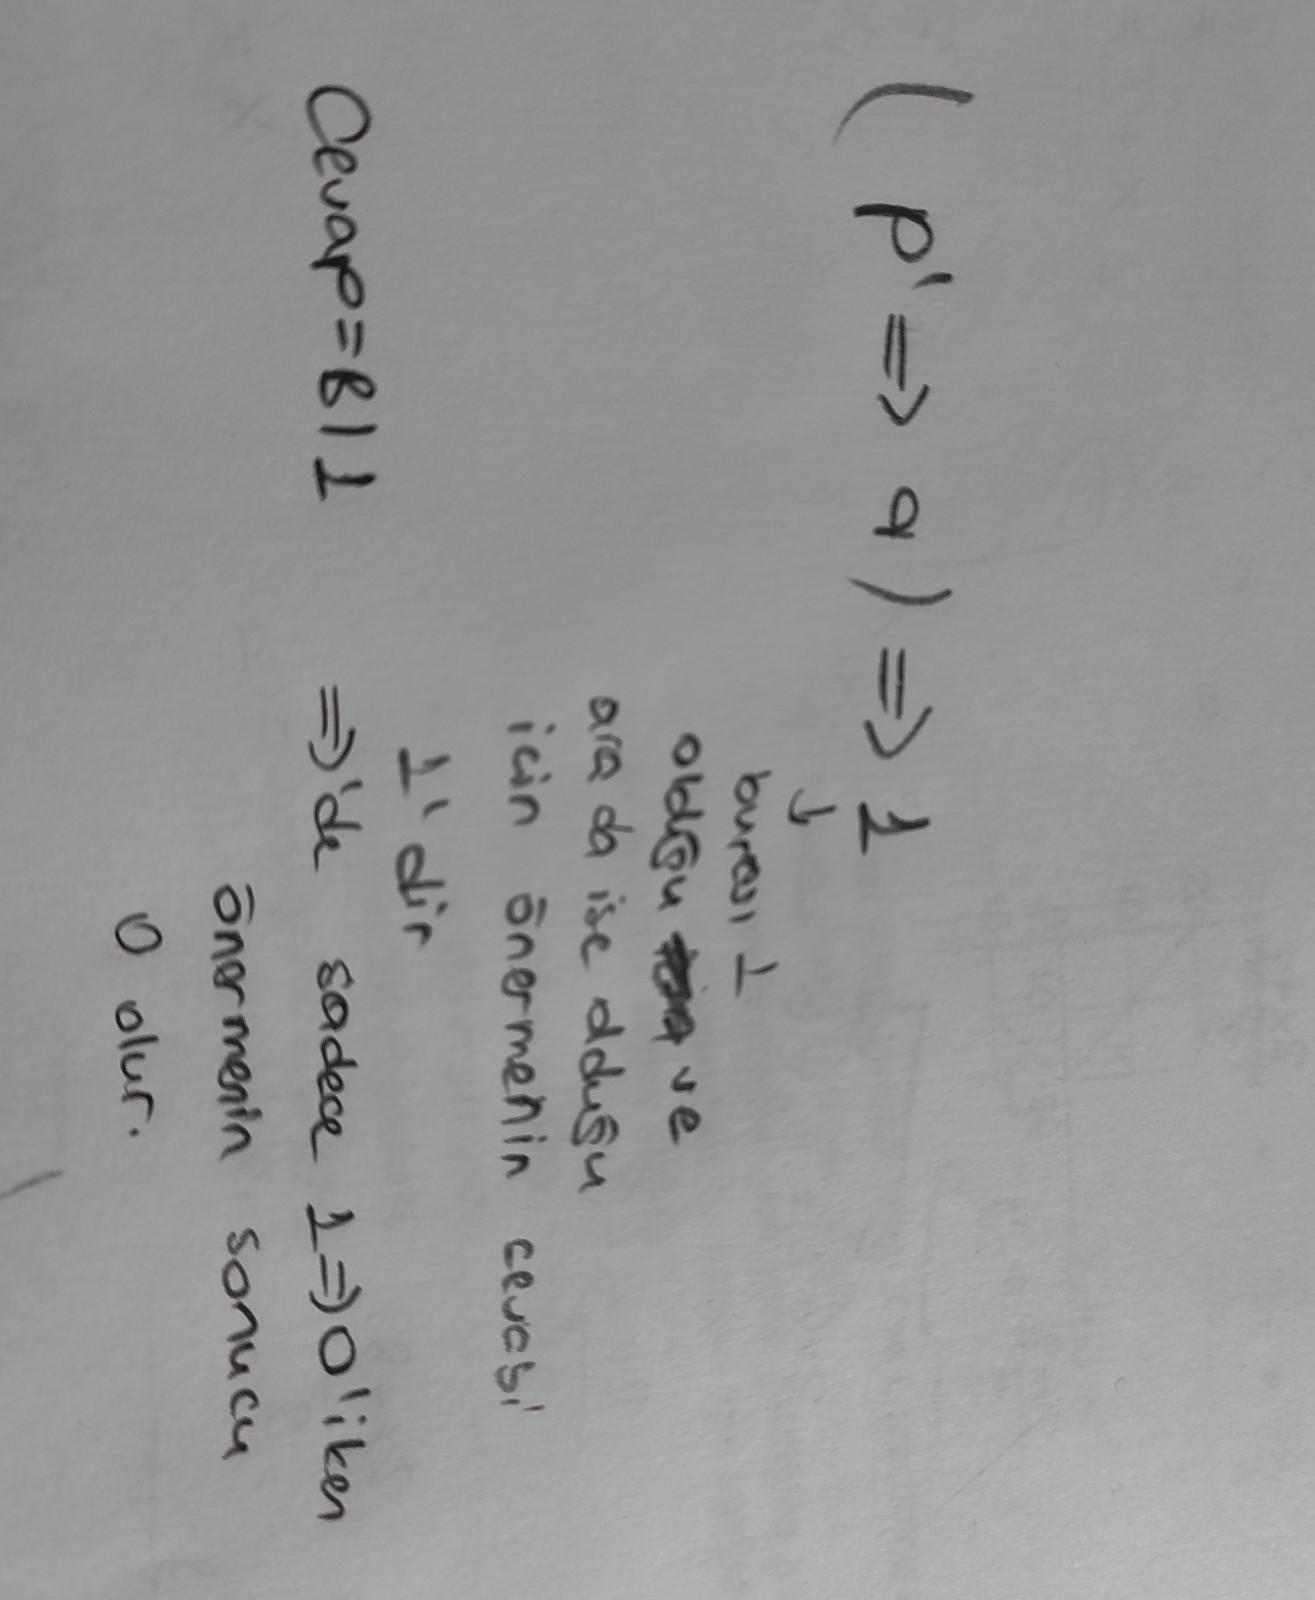 ( p' ⇒ q ) ⇒ 1
↓
burası 1
olduğu ve
ara da ise olduğu
için önermenin cevabı
1' dir
Cevap = B) 1
⇒'de sadece 1⇒0'iken
önermenin sonucu
0 olur.